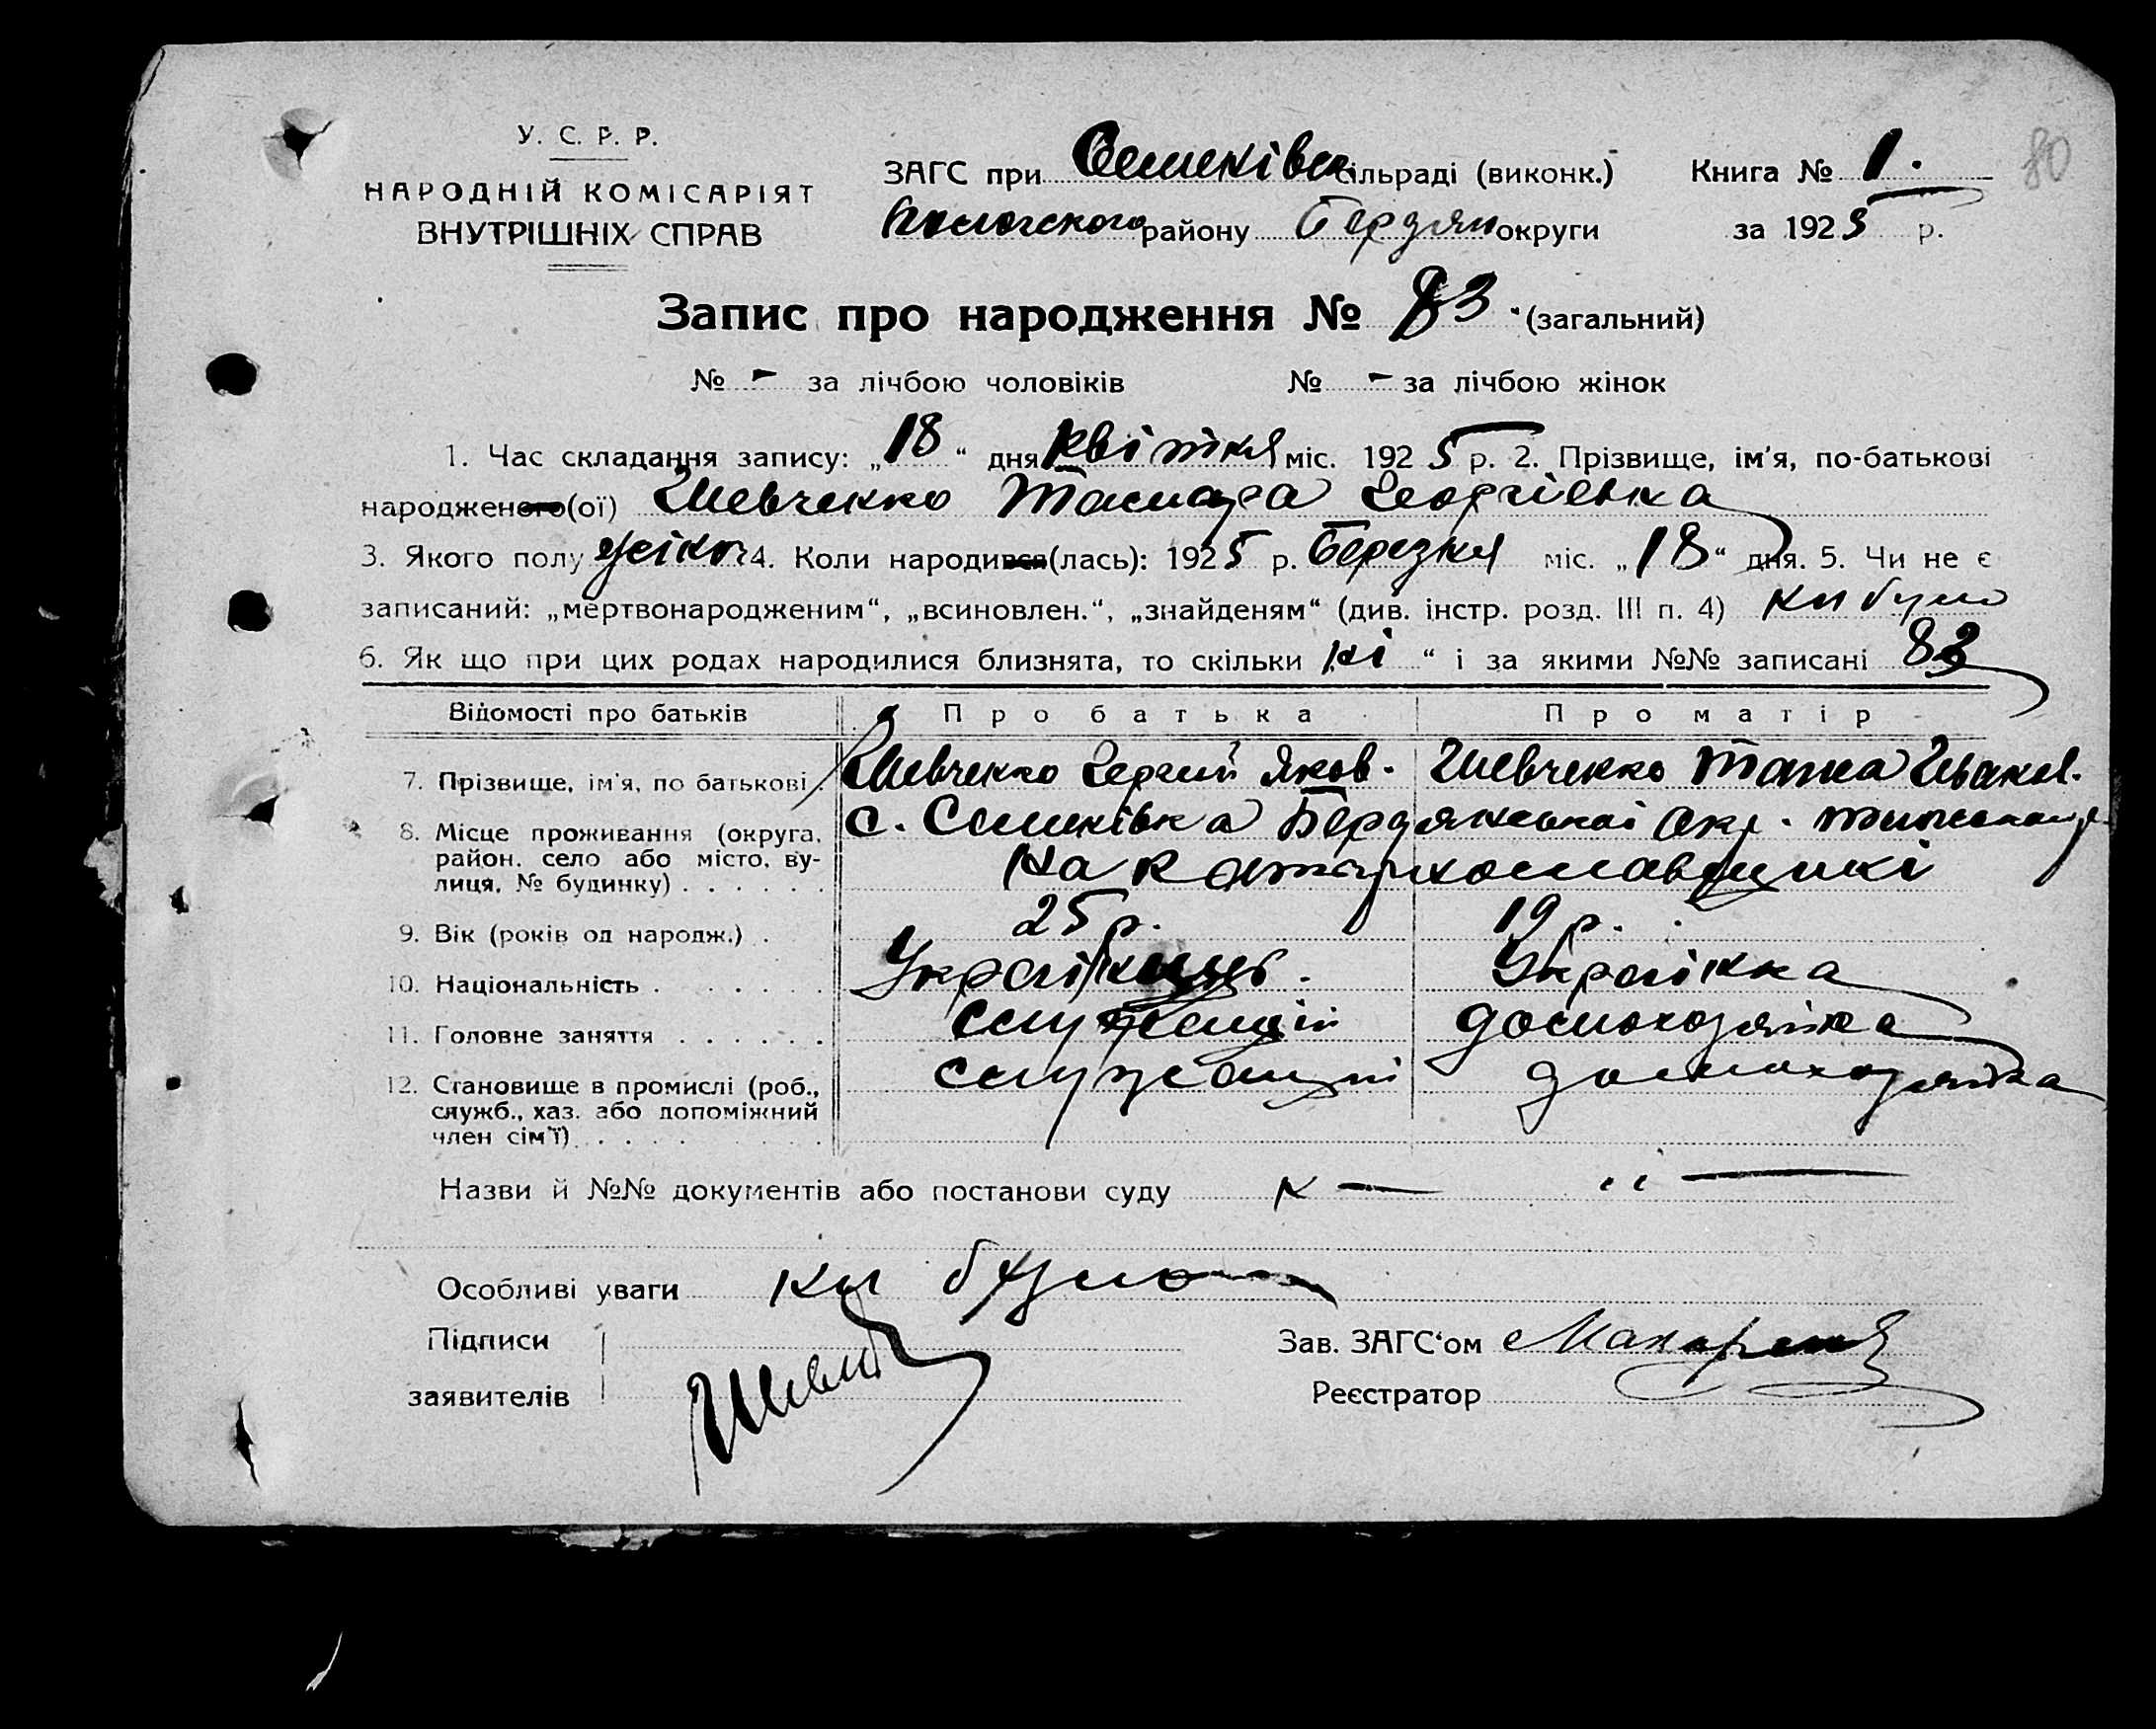 У. С. Р. Р.
НАРОДНІЙ КОМІСАРІЯТ
ВНУТРІШНІХ СПРАВ
ЗАГС при Семенівск сільраді (виконк.) Книга № 1. 80
району Бердян округи за 1925 р.
Запис про народження № 83 (загальний)
№ - за лічбою чоловіків № - за лічбою жінок
1. Час складання запису: „18“ дня квітня міс. 1925 р. 2. Прізвище, ім'я, по-батькові
народженого(ої) Шевченко Тамара Георгіевна
3. Якого полу жіноч 4. Коли народився(лась): 1925 р. Березня міс. „18“ дня. 5. Чи не є
записаний: „мертвонародженим“, „всиновлен.“, „знайденям“ (див. інстр. розд. III п. 4) ни було
6. Як що при цих родах народилися близнята, то скільки ні “ і за якими №№ записані 83
Відомості про батьків Про батька Про матір
7. Прізвище, ім'я, по батькові . Шевченко Яков. Шевченко
8. Місце проживання (округа, с. Семенівка Бердянської окр.
район, село або місто, ву-
лиця, № будинку) . . . . . . на
9. Вік (років од народж.) . 25 р. 19 р.
10. Національність . . . . . . . Українець. Українка
11. Головне заняття . . . . . . служащий домохозяйка
12. Становище в промислі (роб., служащий домохозяйка
служб., хаз. або допоміжний
член сім'ї) . . . .
Назви й №№ документів або постанови суду н — іі —
Особливі уваги ни було
Підписи Зав. ЗАГС'ом
заявителів Реєстратор